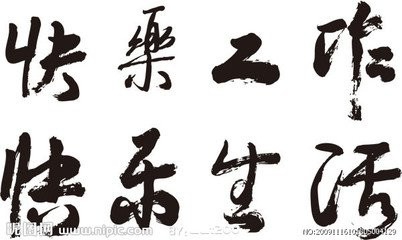 快樂工作
快乐生活
昵图网 www.nipic.com